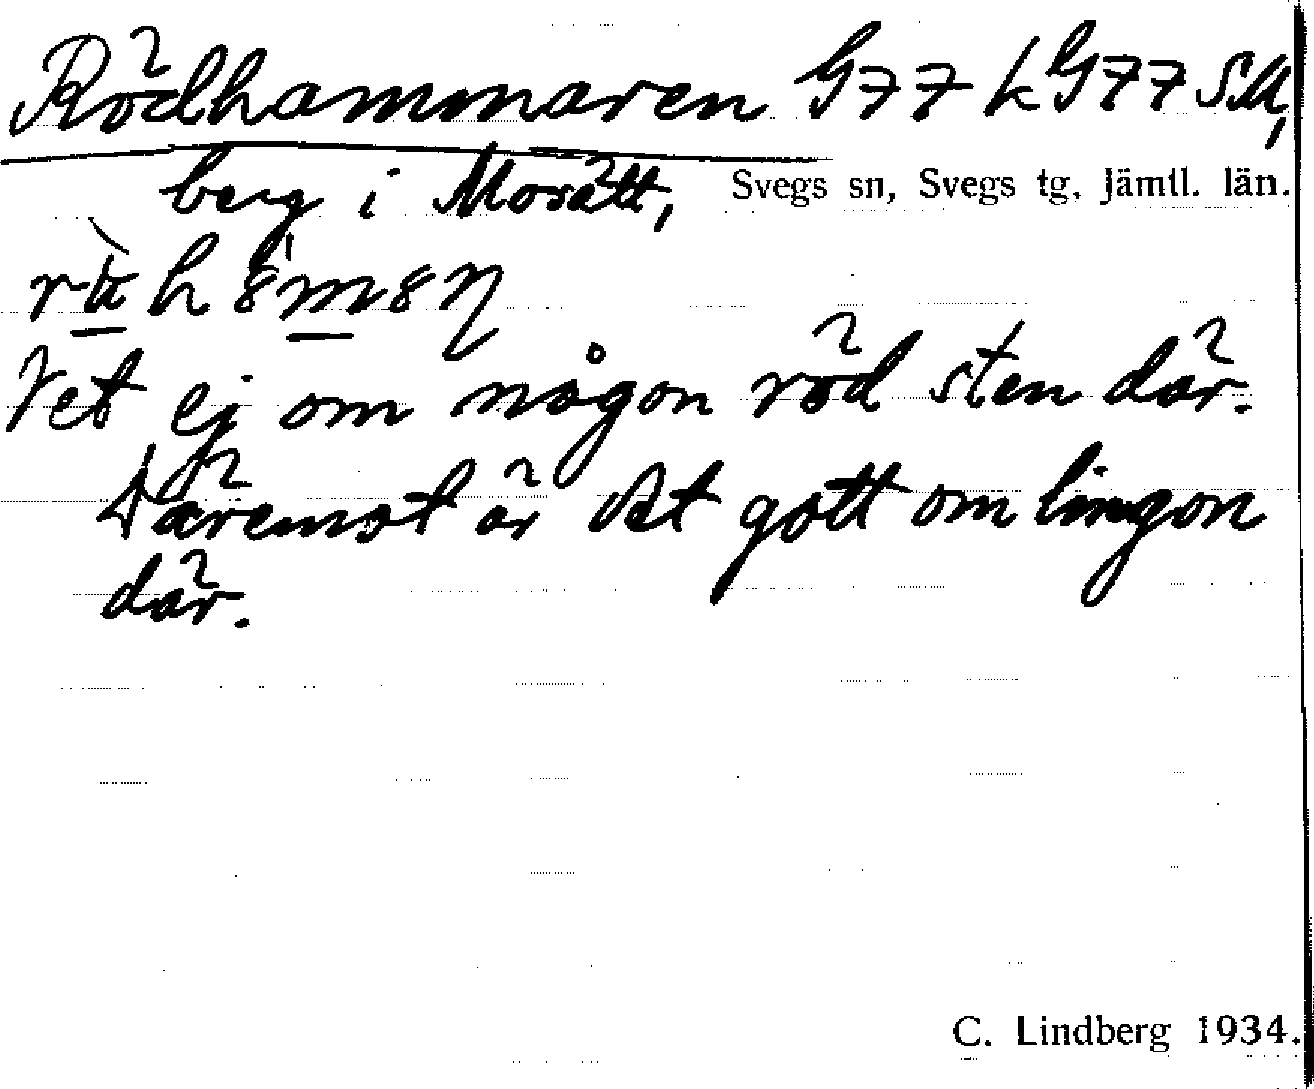 Rödhammaren G77 k G77 SSA,
berg i Morätt, Svegs sn, Svegs tg, Jämtl. län.
Vet ej om någon röd sten där.
Däremot är det gott om lingon
där.
C. Lindberg 1934.